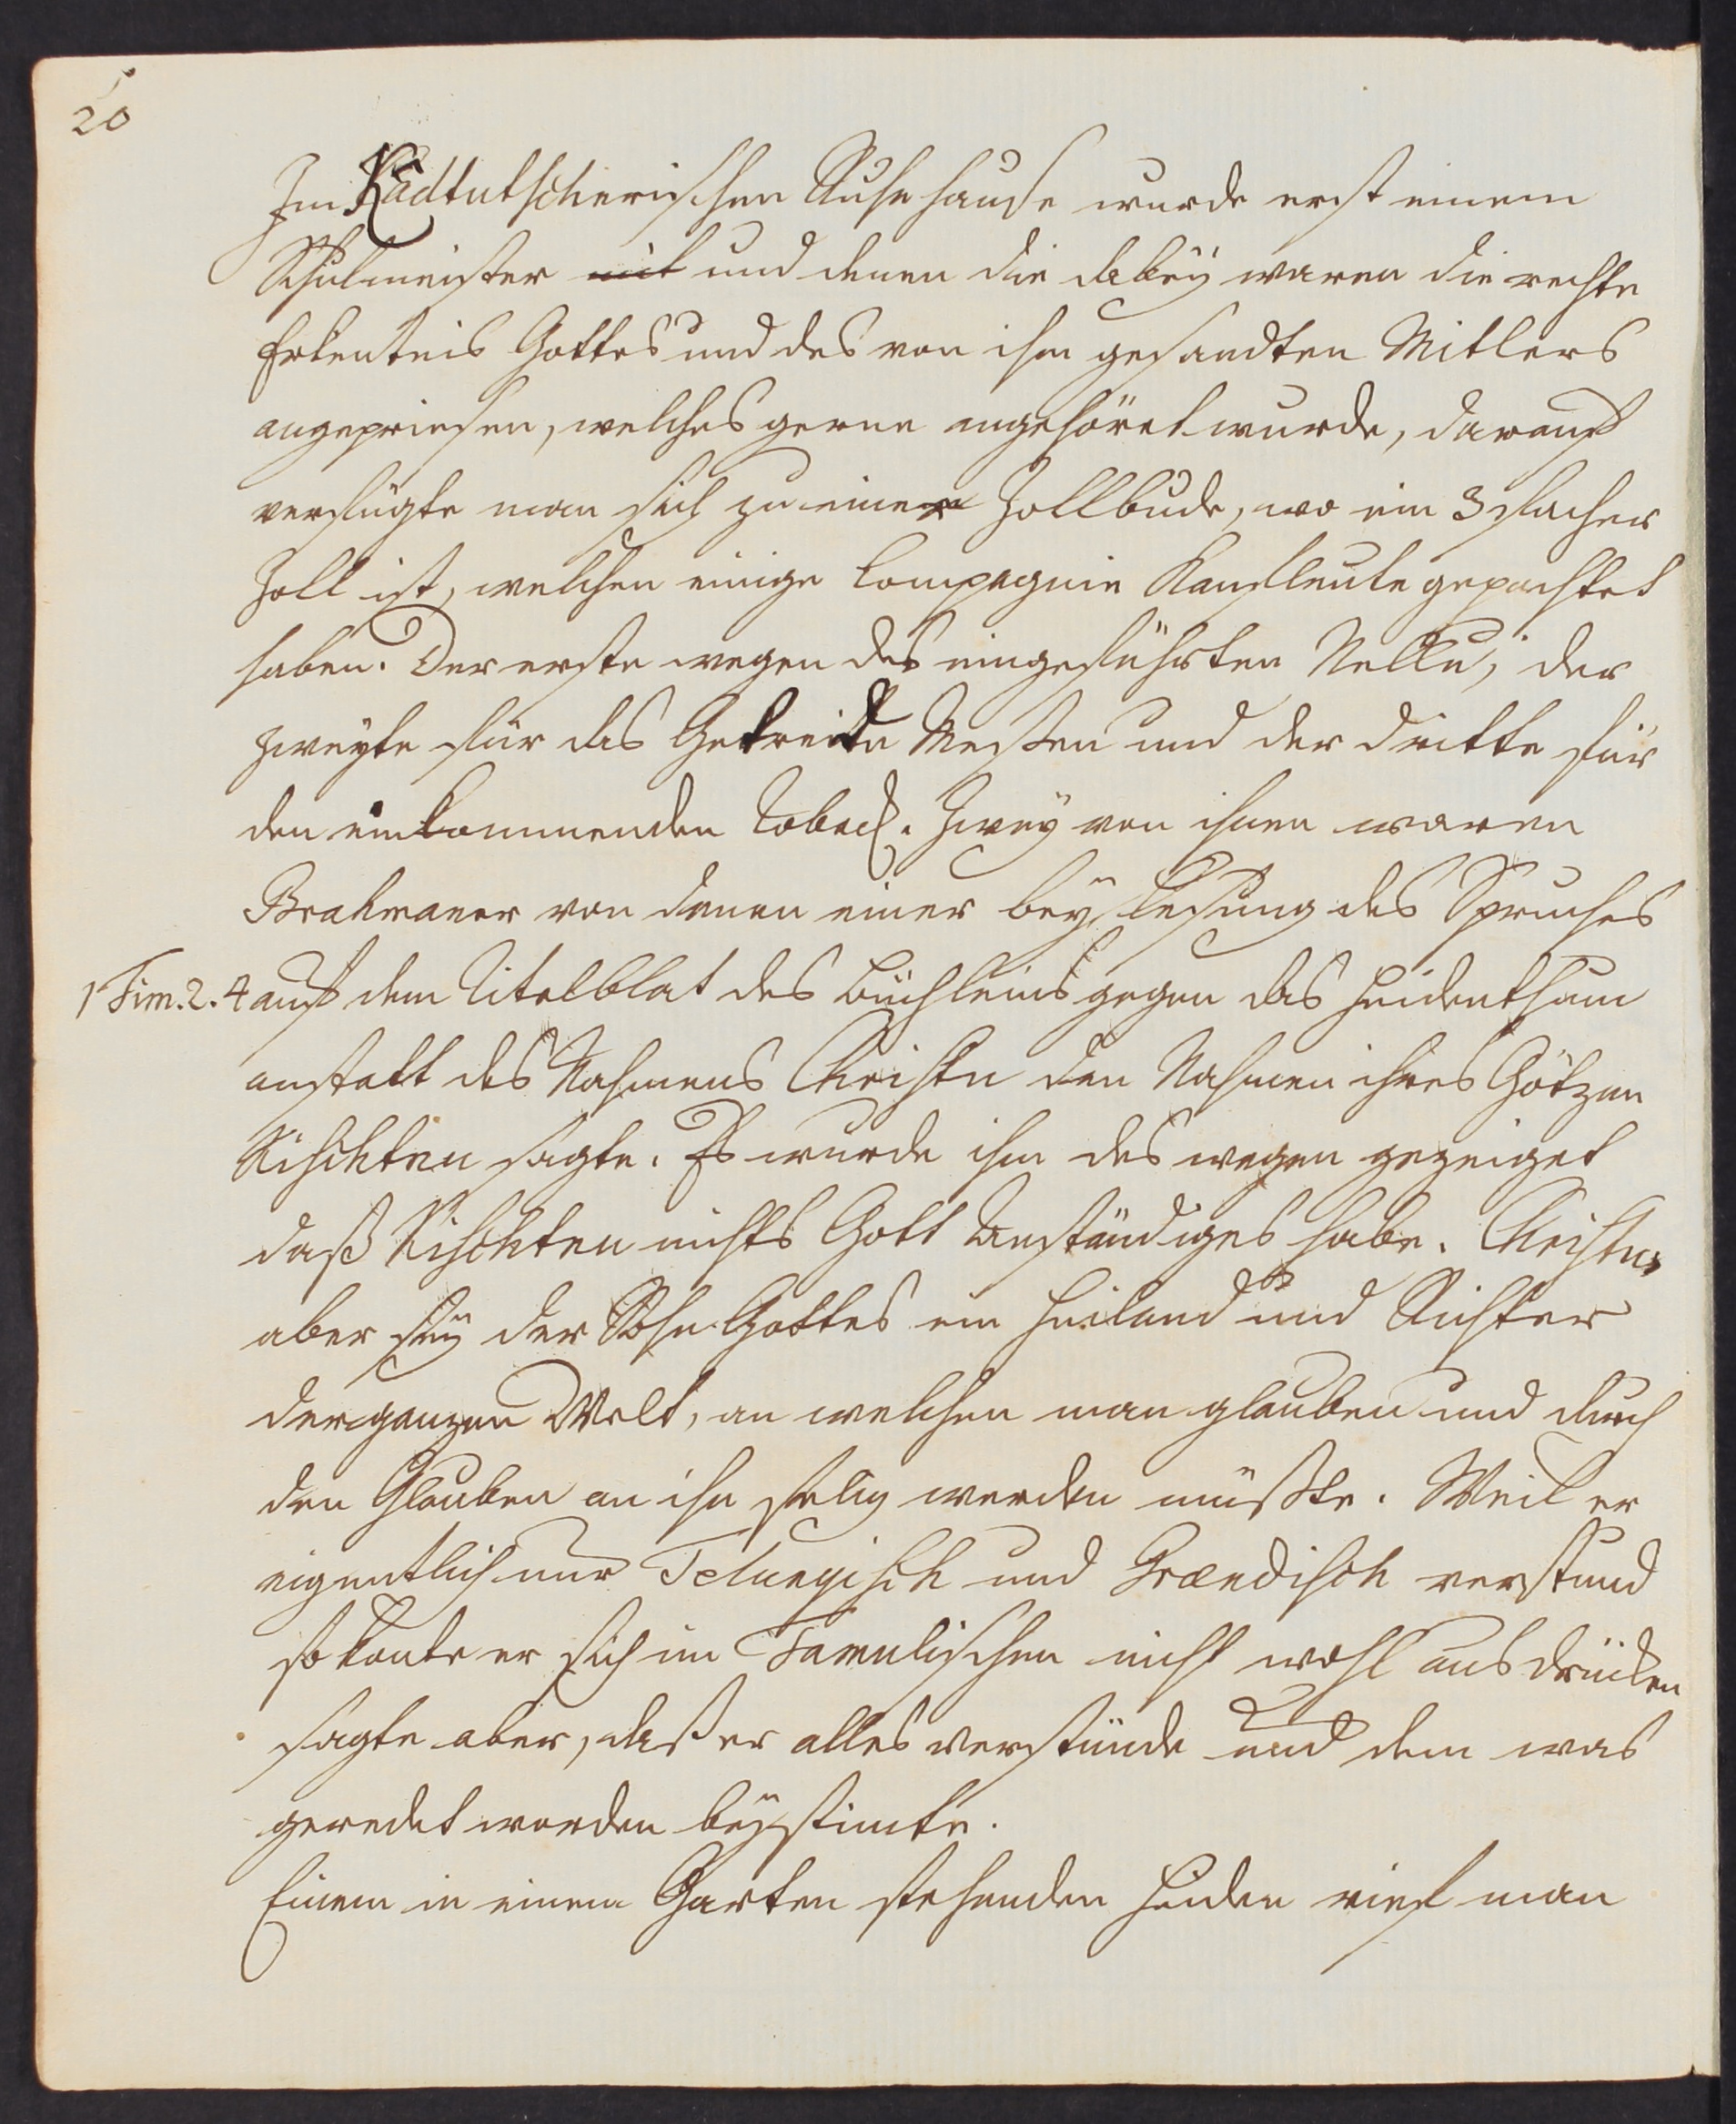 20
Im Kadtutscherischen Ruhehause wurde erst einem
Schulmeister mit und denen die dabey waren die rechte
Erkentnis Gottes und des von ihm gesandten Mitlers
angepriesen, welches gerne angehöret wurde, darauf
verfügte man sich zu einer Zollbude, wo ein 3facher
Zoll ist, welchen einige Compagnie Kaufleute gepachtet
haben. Der erste wegen des eingeführten Nellu, der
zweyte für das Getreide Messen und der dritte für
den einkommenden Toback. Zwey von ihnen waren
Brahmaner von denen einer bey Lesung des Spruches
1 Tim. 2. 4 auf dem Titelblat des Büchleins gegen das Heidenthum
anstatt des Nahmens Christu den Nahmen ihres Götzen
Kischten sagte. Es wurde ihm des wegen gezeiget
daß Kischten nichts Gott Anständiges habe. Christus
aber sey der Sohn Gottes ein Heiland und Richter
der ganzen Welt, an welchen man glauben und durch
den Glauben an ihn selig werden müßte. Weil er
eigentlich nur Telungisch und Grændisch verstund
so konte er sich im Tamulischen nicht wohl ausdrücken
sagte aber, daß er alles verstünde und dem was
geredet worden beystimte.
Einem in einem Garten stehenden Heiden rief man